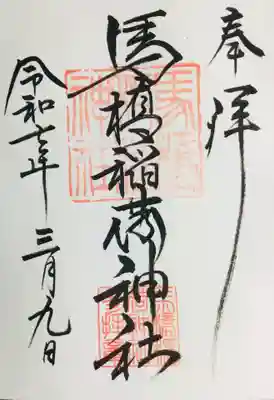 奉拝
馬橋稲荷神社
令和七年三月九日